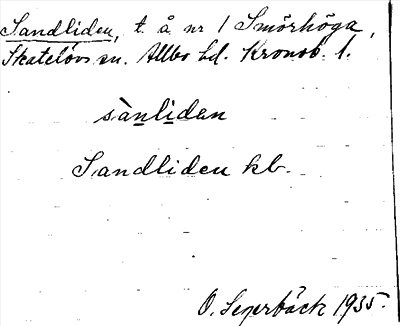 Sandliden, t. å nr 1 Smörhöga,
Skatelövs sn. Allbo hd. Kronob. l.
sànlidan
Sandliden kb.
O. Seyerbäck 1935.